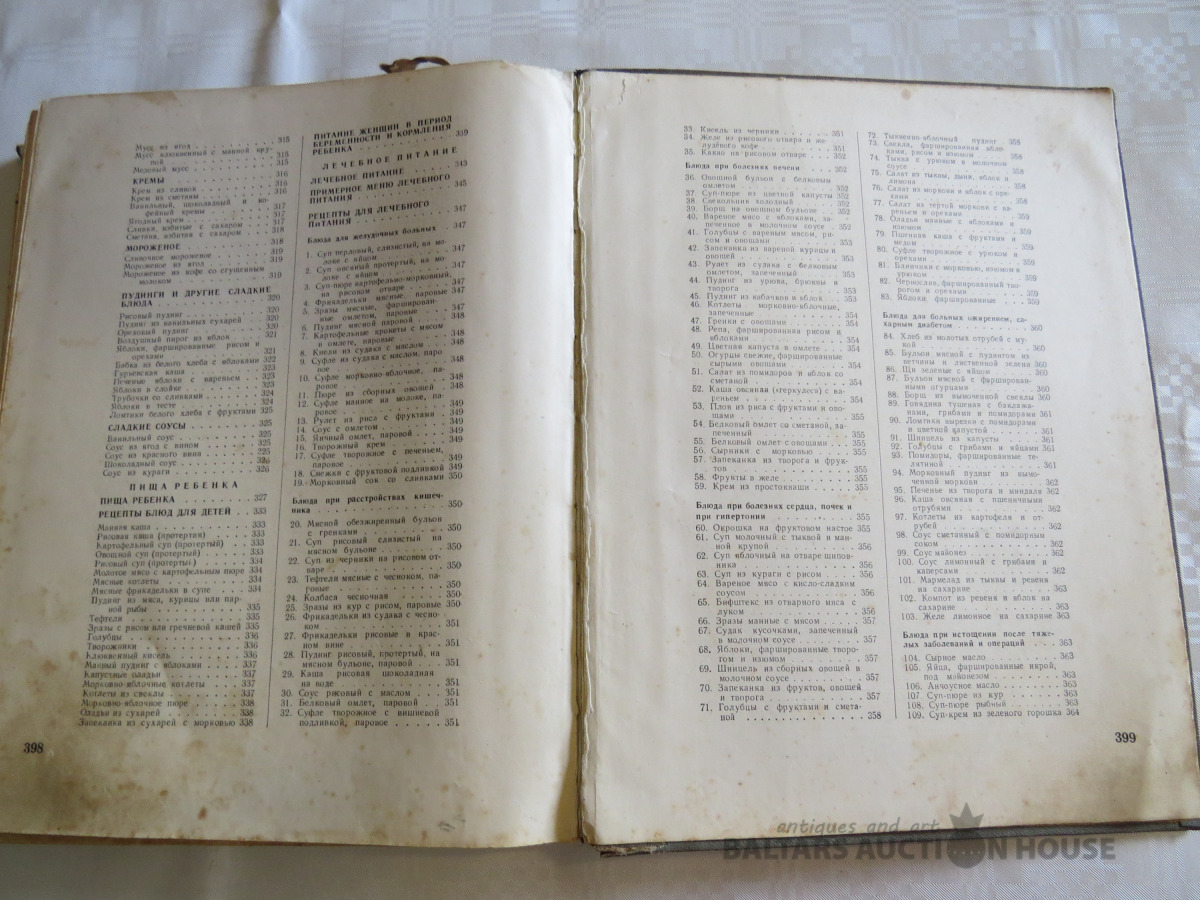 Мусс из ягод . . . . . . . . 315
Мусс клюквенный с манной кру-
пой . . . . . . . . 315
Медовый мусс . . . . . . . . 315
КРЕМЫ . . . . . . . . 316
Крем из сливок . . . . . . . . 316
Крем из сметаны . . . . . . . . 316
Ванильный, шоколадный и ко-
фейный кремы . . . . . . . . 317
Ягодный крем . . . . . . . . 317
Сливки, взбитые с сахаром . . . 317
Сметана, взбитая с сахаром . . . 318
МОРОЖЕНОЕ . . . . . . . . 318
Сливочное мороженое . . . . . . 319
Мороженое из ягод . . . . . . . 319
Мороженое из кофе со сгущенным
молоком . . . . . . . . 319
ПУДИНГИ И ДРУГИЕ СЛАДКИЕ
БЛЮДА . . . . . . . . 320
Рисовый пудинг . . . . . . . . 320
Пудинг из ванильных сухарей . . 320
Ореховый пудинг . . . . . . . . 320
Воздушный пирог из яблок . . . 321
Яблоки, фаршированные рисом и
орехами . . . . . . . . 321
Бабка из белого хлеба с яблоками 322
Гурьевская каша . . . . . . . . 323
Печеные яблоки с вареньем . . . 323
Яблоки в слойке . . . . . . . . 323
Трубочки со сливками . . . . . . 324
Яблоки в тесте . . . . . . . . 324
Ломтики белого хлеба с фруктами 325
СЛАДКИЕ СОУСЫ . . . . . . . . 325
Ванильный соус . . . . . . . . 325
Соус из ягод с вином . . . . . . 325
Соус из красного вина . . . . . 225
Шоколадный соус . . . . . . . . 326
Соус из кураги . . . . . . . . 326
ПИЩА РЕБЕНКА
ПИЩА РЕБЕНКА . . . . . . . . 327
РЕЦЕПТЫ БЛЮД ДЛЯ ДЕТЕЙ . . 333
Манная каша . . . . . . . . 333
Рисовая каша (протертая) . . . 333
Картофельный суп (протертый) . . 333
Овощной суп (протертый) . . . . 333
Рисовый суп (протертый) . . . . 334
Молотое мясо с картофельным пюре 334
Мясные котлеты . . . . . . . . 334
Мясные фрикадельки в супе . . . 334
Пудинг из мяса, курицы или пар-
ной рыбы . . . . . . . . 335
Тефтели . . . . . . . . 335
Зразы с рисом или гречневой кашей 335
Голубцы . . . . . . . . 336
Творожники . . . . . . . . 336
Клюквенный кисель . . . . . . . 336
Манный пудинг с яблоками . . . 337
Капустные оладьи . . . . . . . . 337
Морковно-яблочные котлеты . . . 337
Котлеты из свеклы . . . . . . . 337
Морковно-яблочное пюре . . . . . 338
Оладьи из сухарей . . . . . . . 338
Запеканка из сухарей с морковью 338
398
ПИТАНИЕ ЖЕНЩИН В ПЕРИОД
БЕРЕМЕННОСТИ И КОРМЛЕНИЯ
РЕБЕНКА . . . . . . . . 339
ЛЕЧЕБНОЕ ПИТАНИЕ
ЛЕЧЕБНОЕ ПИТАНИЕ . . . . . . 343
ПРИМЕРНОЕ МЕНЮ ЛЕЧЕБНОГО
ПИТАНИЯ . . . . . . . . 345
РЕЦЕПТЫ ДЛЯ ЛЕЧЕБНОГО
ПИТАНИЯ . . . . . . . . 347
Блюда для желудочных больных . 347
1. Суп перловый, слизистый, на мо-
локе с яйцом . . . . . . . . 347
2. Суп овсяный протертый, на мо-
локе с яйцом . . . . . . . . 347
3. Суп-пюре картофельно-морковный,
на рисовом отваре . . . . . . 347
4. Фрикадельки мясные, паровые 347
5. Зразы мясные, фарширован-
ные омлетом, паровые . . . . 347
6. Пудинг мясной паровой . . . . 348
7. Картофельные крокеты с мясом
в омлете, паровые . . . . . . 348
8. Кнели из судака с маслом . . . 348
9. Суфле из судака с маслом, паро
вое . . . . . . . . 348
10. Суфле морковно-яблочное, па-
ровое . . . . . . . . 348
11. Пюре из сборных овощей . . . 348
12. Суфле манное на молоке, па-
ровое . . . . . . . . 349
13. Рулет из риса с фруктами . . . 349
14. Соус с омлетом . . . . . . . . 349
15. Яичный омлет, паровой . . . . 349
16. Творожный крем . . . . . . . 349
17. Суфле творожное с печеньем,
паровое . . . . . . . . 349
18. Снежки с фруктовой подливкой 349
19. Морковный сок со сливками 350
Блюда при расстройствах кишеч-
ника . . . . . . . . 350
20. Мясной обезжиренный бульон
с гренками . . . . . . . . 350
21. Суп рисовый слизистый на
мясном бульоне . . . . . . . 350
22. Суп из черники на рисовом от-
варе . . . . . . . . 350
23. Тефтели мясные с чесноком, па-
ровые . . . . . . . . 350
24. Колбаса чесночная . . . . . . 350
25. Зразы из кур с рисом, паровые 350
26. Фрикадельки из судака с чесно-
ком . . . . . . . . 351
27. Фрикадельки рисовые в крас-
ном вине . . . . . . . . 351
28. Пудинг рисовый, протертый, на
мясном бульоне, паровой . . . 351
29. Каша рисовая шоколадная
на воде . . . . . . . . 351
30. Соус рисовый с маслом . . . . 351
31. Белковый омлет, паровой . . . 351
32. Суфле творожное с вишневой
подливкой, паровое . . . . . 351
33. Кисель из черники . . . . . . 351
34. Желе из рисового отвара и же
лудёвого кофе . . . . . . . . 351
35. Какао на рисовом отваре . . . 352
Блюда при болезни печени . . . 352
36. Овощной бульон с белковым
омлетом . . . . . . . . 352
37. Суп-пюре из цветной капусты 352
38. Свекольник холодный . . . . . 352
39. Борщ на овощном бульоне . . . 352
40. Вареное мясо с яблоками, за-
печенное в молочном соусе . . 352
41. Голубцы с вареным мясом, ри-
сом и овощами . . . . . . . . 353
42. Запеканка из вареной курицы и
овощей . . . . . . . . 353
43. Рулет из судака с белковым
омлетом, запеченный . . . . . 353
44. Пудинг из урюка, брюквы и
творога . . . . . . . . 353
45. Пудинг из кабачков и яблок . . 353
46. Котлеты морковно-яблочные,
запеченные . . . . . . . . 354
47. Гренки с овощами . . . . . . 354
48. Репа, фаршированная рисом и
яблоками . . . . . . . . 354
49. Цветная капуста в омлете . . . 354
50. Огурцы свежие, фаршированные
сырыми овощами . . . . . . . 354
51. Салат из помидоров и яблок со
сметаной . . . . . . . . 354
52. Каша овсяная («геркулес») с ва-
реньем . . . . . . . . 354
53. Плов из риса с фруктами и ово-
щами . . . . . . . . 355
54. Белковый омлет со сметаной, за-
печенный . . . . . . . . 355
55. Белковый омлет с овощами . . . 355
56. Сырники с морковью . . . . . 355
57. Запеканка из творога и фрук-
тов . . . . . . . . 355
58. Фрукты в желе . . . . . . . . 355
59. Крем из простокваши . . . . . 355
Блюда при болезнях сердца, почек и
при гипертонии . . . . . . . . 355
60. Окрошка на фруктовом настое 355
61. Суп молочный с тыквой и ман-
ной крупой . . . . . . . . 356
62. Суп яблочный на отваре шипов-
ника . . . . . . . . 356
63. Суп из кураги с рисом . . . . 356
64. Вареное мясо с кисло-сладким
соусом . . . . . . . . 356
65. Бифштекс из отварного мяса с
луком . . . . . . . . 356
66. Зразы манные с мясом . . . . . 357
67. Судак кусочками, запеченный
в молочном соусе . . . . . . 357
68. Яблоки, фаршированные творо-
гом и изюмом . . . . . . . . 357
69. Шницель из сборных овощей в
молочном соусе . . . . . . . 357
70. Запеканка из фруктов, овощей
и творога . . . . . . . . 357
71. Голубцы с фруктами и смета-
ной . . . . . . . . 358
72. Тыквенно-яблочный пудинг . . 358
73. Свекла, фаршированная ябло-
ками, рисом и изюмом . . . . 358
74. Тыква с урюком в молочном
соусе . . . . . . . . 358
75. Салат из тыквы, дыни, яблок и
лимона . . . . . . . . 358
76. Салат из моркови и яблок с оре-
хами . . . . . . . . 358
77. Салат из тертой моркови с ва-
реньем и орехами . . . . . . 359
78. Оладьи манные с яблоками и
изюмом . . . . . . . . 359
79. Пшенная каша с фруктами и
медом . . . . . . . . 359
80. Суфле творожное с урюком и
орехами . . . . . . . . 359
81. Блинчики с морковью, изюмом и
урюком . . . . . . . . 359
82. Чернослив, фаршированный тво-
рогом и орехами . . . . . . . 359
83. Яблоки фаршированные . . . . 359
Блюда для больных ожирением, са-
харным диабетом . . . . . . . 360
84. Хлеб из молотых отрубей с му-
кой . . . . . . . . 360
85. Бульон мясной с пудингом из
ветчины и лиственной зелени 360
86. Щи зеленые с яйцом . . . . . 360
87. Бульон мясной с фарширован-
ными огурцами . . . . . . . . 360
88. Борщ из вымоченной свеклы 360
89. Говядина тушеная с баклажа-
нами, грибами и помидорами 361
90. Ломтики вырезки с помидорами
и цветной капустой . . . . . 361
91. Шницель из капусты . . . . . 361
92. Голубцы с грибами и яйцами 361
93. Помидоры, фаршированные те-
лятиной . . . . . . . . 361
94. Морковный пудинг из вымо-
ченной моркови . . . . . . . 362
95. Печенье из творога и миндаля 362
96. Каша овсяная с пшеничными
отрубями . . . . . . . . 362
97. Котлеты из картофеля и от-
рубей . . . . . . . . 362
98. Соус сметанный с помидорным
соком . . . . . . . . 362
99. Соус майонез . . . . . . . . 362
100. Соус лимонный с грибами и
каперсами . . . . . . . . 362
101. Мармелад из тыквы и ревеня
на сахарине . . . . . . . . 363
102. Компот из ревеня и яблок на
сахарине . . . . . . . . 363
103. Желе лимонное на сахарине 363
Блюда при истощении после тяже-
лых заболеваний и операций . . . 363
104. Сырное масло . . . . . . . . 363
105. Яйца, фаршированные икрой,
под майонезом . . . . . . . . 363
106. Анчоусное масло . . . . . . . 363
107. Суп-пюре из кур . . . . . . . 363
108. Суп-пюре рыбный . . . . . . . 363
109. Суп-крем из зеленого горошка 364
399
antiques and art
BALTARS AUCTION HOUSE